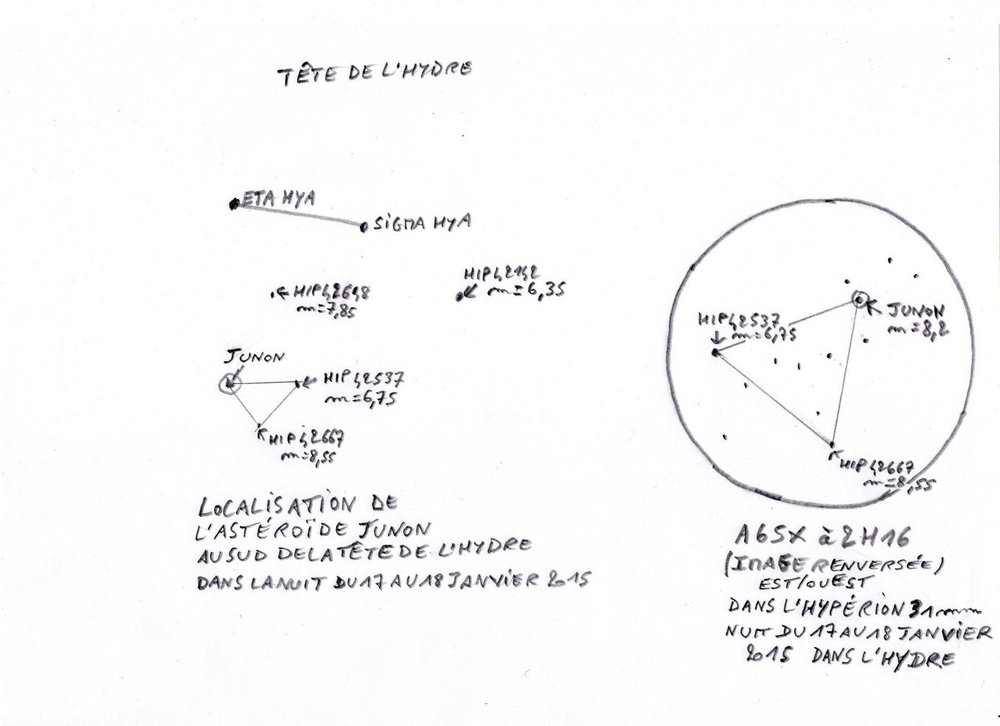 TÊTE DE L'HYDRE
ETA HYA
SIGMA HYA
HIP42142
m=6,35
HIP42648
m=7,85
JUNON
HIP42537
m=6,75
HIP42667
m=8,55
LOCALISATION DE
L'ASTÉROÏDE JUNON
AU SUD DE LA TÊTE DE L'HYDRE
DANS LA NUIT DU 17 AU 18 JANVIER 2015
HIP42537
m=6,75
JUNON
m=8,2
HIP42667
m=8,55
A 65X à 2H16
(IMAGE RENVERSÉE)
EST/OUEST
DANS L'HYPÉRION 31mm
NUIT DU 17 AU 18 JANVIER
2015 DANS L'HYDRE